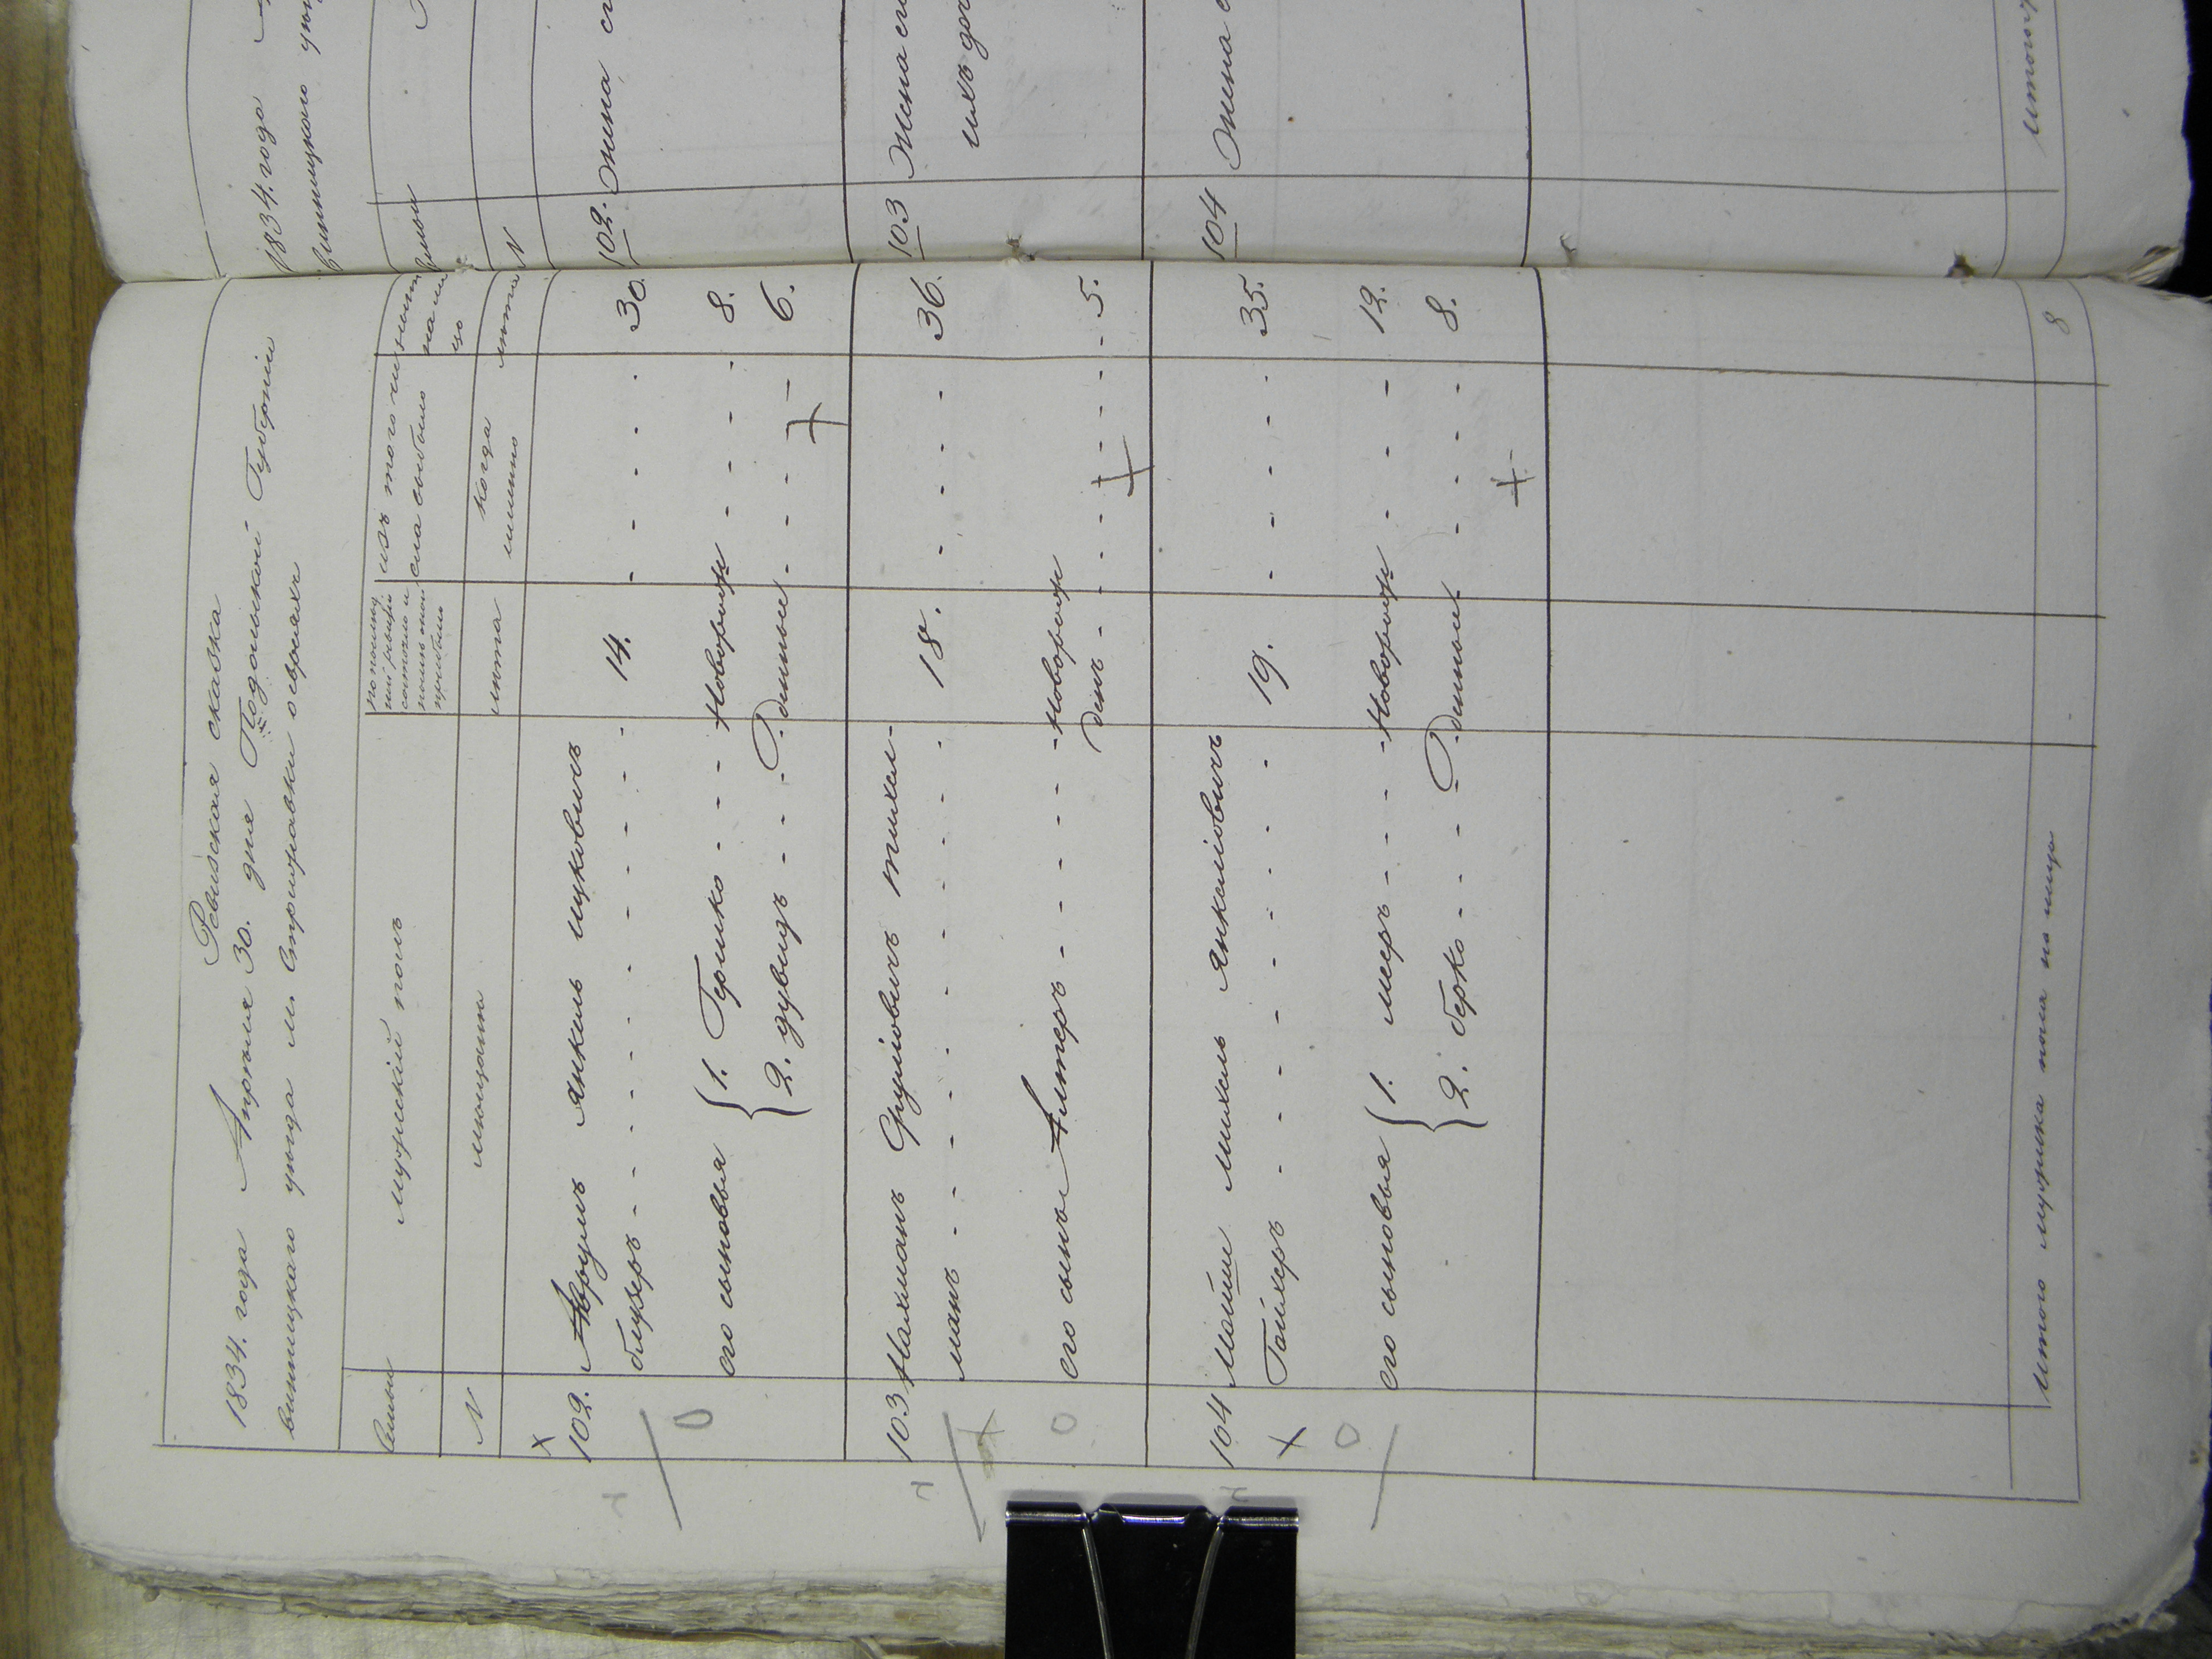 Ревизская сказка
1834. года Апреля 30. дня Подольской Губернии
винницкаго уезда м. Стрижавки оевреяхъ
Семьи
мужеский полъ
по последней ревизии состояло и после того прибыло
изъ того числа выбыло
ныне на лицо
N
мещане
лета
когда именно
лета
102. Аврумъ Янкель ицковичъ
блузеръ - - - - 14. - - - - 30.
его сыновья 1. Гершко - - - Новорож - - - 8.
2. дувидъ - - - денные - - - 6.
103 Нахманъ Сруліовичъ тихел-
манъ - - - - 18. - - - - 36.
его сынъ Алтеръ - - - - Новорож
денъ - - - - - 5.
104 Мойше михель Янкеліовичъ
Гойхеръ - - - - 19. - - - - 35.
его сыновья 1. меръ - - - Новорож - - - 12.
2. берко - - - денные - - - 8.
Итого мужеска пола на лицо 8
1834. года
винницкого
Семьи
N
102. Жена
103 Жена его
ихъ доч
104 Жена
Итого